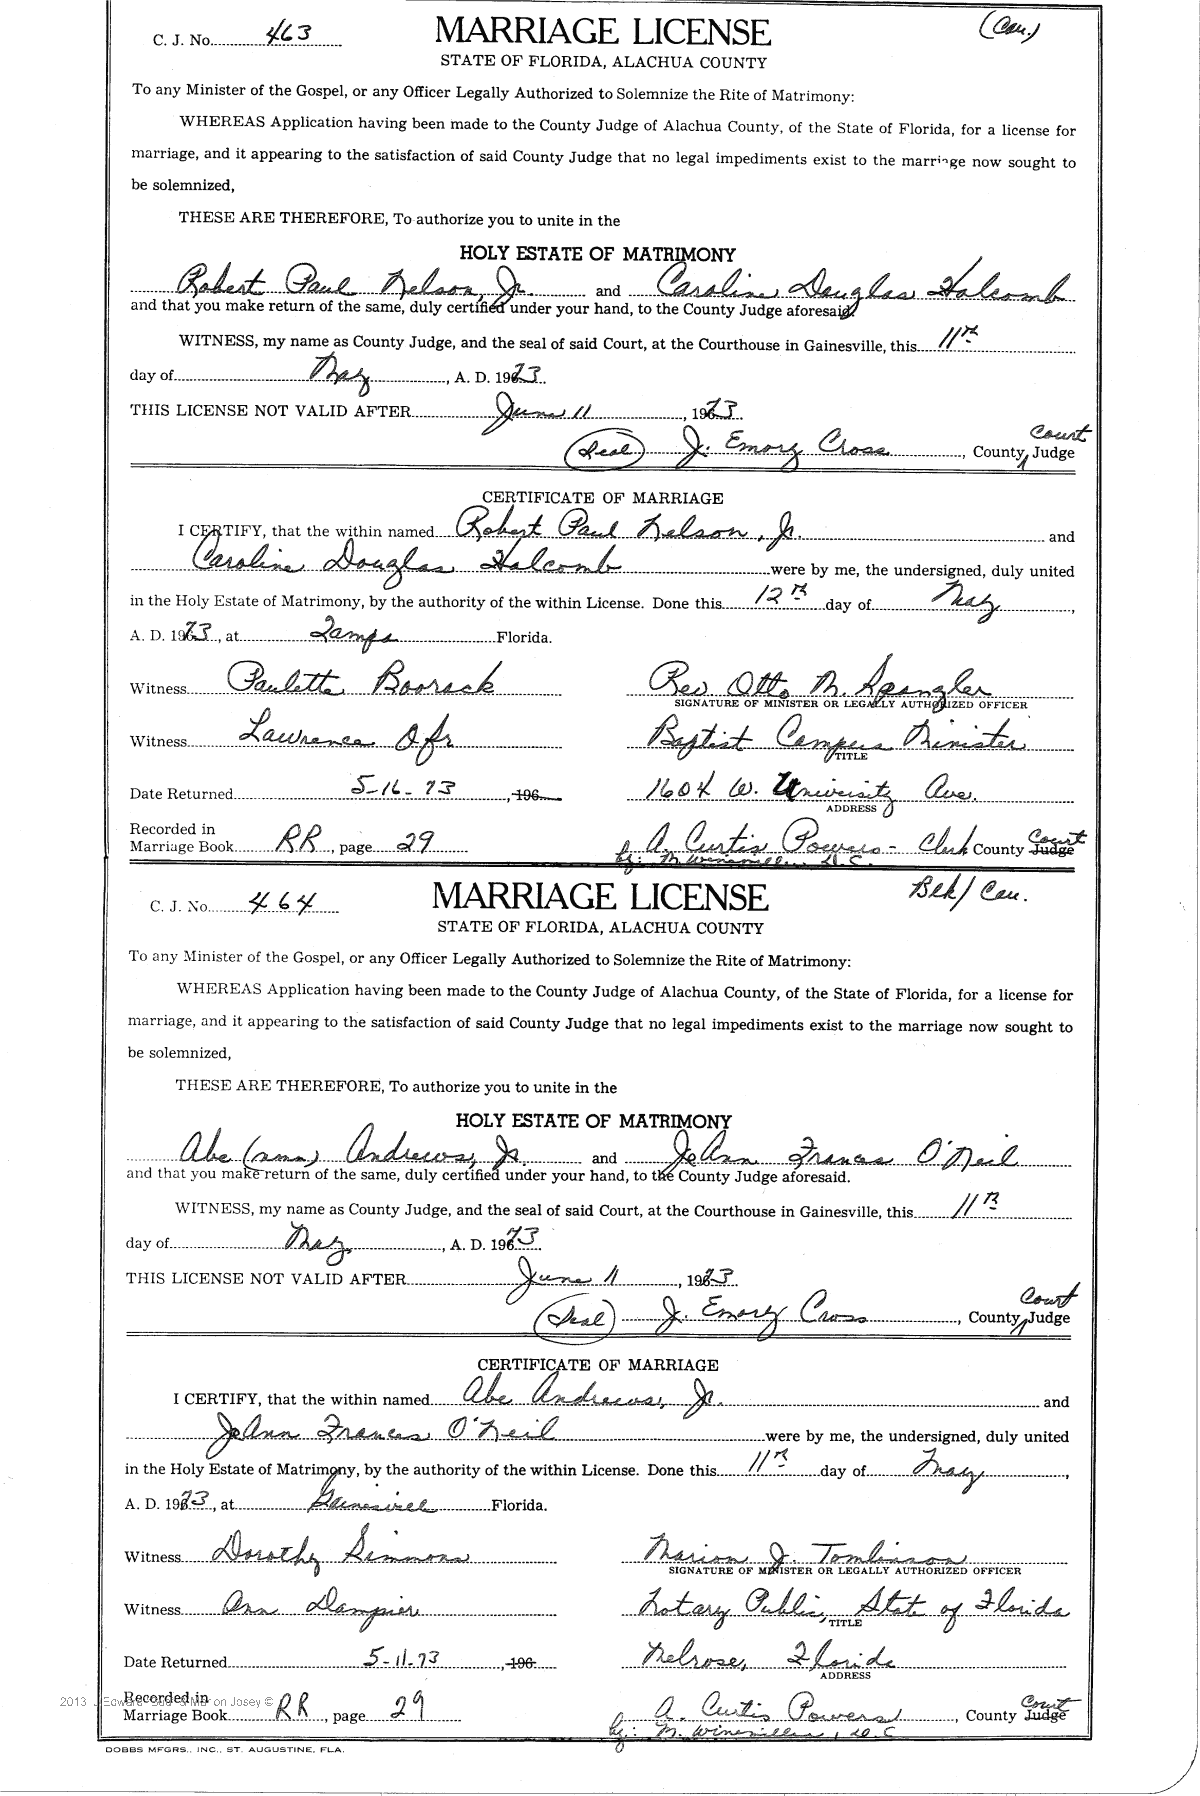 C. J. No. 463 MARRIAGE LICENSE (Cau.)
STATE OF FLORIDA, ALACHUA COUNTY
To any Minister of the Gospel, or any Officer Legally Authorized to Solemnize the Rite of Matrimony:
WHEREAS Application having been made to the County Judge of Alachua County, of the State of Florida, for a license for
marriage, and it appearing to the satisfaction of said County Judge that no legal impediments exist to the marriage now sought to
be solemnized,
THESE ARE THEREFORE, To authorize you to unite in the
HOLY ESTATE OF MATRIMONY
Robert Paul Nelson, Jr. and Caroline Douglas Holcomb
and that you make return of the same, duly certified under your hand, to the County Judge aforesaid.
WITNESS, my name as County Judge, and the seal of said Court, at the Courthouse in Gainesville, this 11th
day of May, A. D. 1973
THIS LICENSE NOT VALID AFTER June 11, 1973
(Seal) J. Emory Cross, County Court Judge
CERTIFICATE OF MARRIAGE
I CERTIFY, that the within named Robert Paul Nelson, Jr. and
Caroline Douglas Holcomb were by me, the undersigned, duly united
in the Holy Estate of Matrimony, by the authority of the within License. Done this 12th day of May,
A. D. 1973, at Tampa Florida.
Witness Paulette Boorack Rev Otto M. Spangler
SIGNATURE OF MINISTER OR LEGALLY AUTHORIZED OFFICER
Witness Lawrence Baptist Campus Minister
TITLE
Date Returned 5-16-73, 196 1604 W. University Ave.
ADDRESS
Recorded in
Marriage Book RR, page 29 A. Curtis Powers - Clerk County Court Judge
by: M. Winesville, D.C.
C. J. No. 464 MARRIAGE LICENSE Blk/Cau.
STATE OF FLORIDA, ALACHUA COUNTY
To any Minister of the Gospel, or any Officer Legally Authorized to Solemnize the Rite of Matrimony:
WHEREAS Application having been made to the County Judge of Alachua County, of the State of Florida, for a license for
marriage, and it appearing to the satisfaction of said County Judge that no legal impediments exist to the marriage now sought to
be solemnized,
THESE ARE THEREFORE, To authorize you to unite in the
HOLY ESTATE OF MATRIMONY
Abe (nmn) Andrews, Jr. and JoAnn Frances O'Neil
and that you make return of the same, duly certified under your hand, to the County Judge aforesaid.
WITNESS, my name as County Judge, and the seal of said Court, at the Courthouse in Gainesville, this 11th
day of May, A. D. 1973
THIS LICENSE NOT VALID AFTER June 11, 1973
(Seal) J. Emory Cross, County Court Judge
CERTIFICATE OF MARRIAGE
I CERTIFY, that the within named Abe Andrews, Jr. and
JoAnn Frances O'Neil were by me, the undersigned, duly united
in the Holy Estate of Matrimony, by the authority of the within License. Done this 11th day of May,
A. D. 1973, at Gainesville Florida.
Witness Dorothy Simmons Marion J. Tomlinson
SIGNATURE OF MINISTER OR LEGALLY AUTHORIZED OFFICER
Witness Ann Dampier Notary Public, State of Florida
TITLE
Date Returned 5-11-73, 196 Melrose, Florida
ADDRESS
Recorded in
Marriage Book RR, page 29 A. Curtis Powers, County Court Judge
by: M. D.C.
2013 Josey ©
DOBBS MFGRS., INC., ST. AUGUSTINE, FLA.